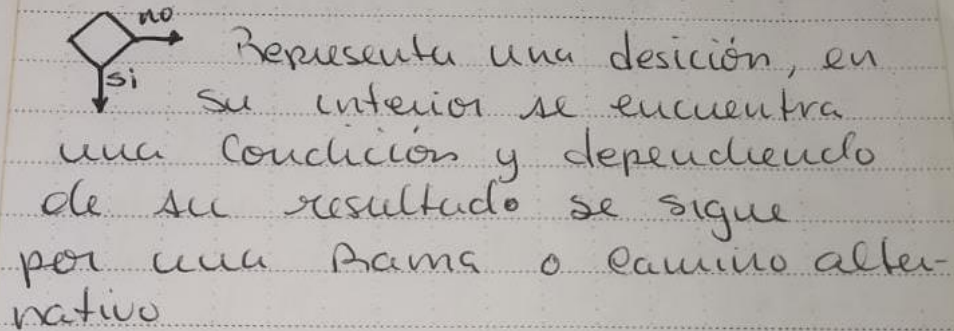 no
si
Representa una desición, en
su interior se encuentra
una Condición y dependiendo
de su resultado se sigue
por una Rama o camino alter-
nativo